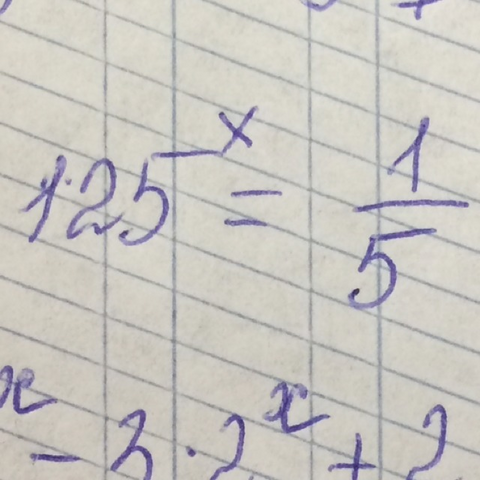 125^x = 1/5
x - 3 · 2^x + 2